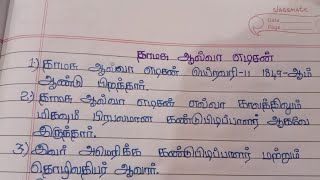 classmate
Date
Page
தாமசு ஆல்வா எடிசன்
1) தாமசு ஆல்வா எடிசன் பிப்ரவரி-11 1847-ஆம்
ஆண்டு பிறந்தார்.
2) தாமசு ஆல்வா எடிசன் எல்லா காலத்திலும்
மிகவும் பிரபலமான கண்டுபிடிப்பாளர் ஆகவே
இருந்தார்.
3) இவர் அமெரிக்க கண்டுபிடிப்பாளர் மற்றும்
தொழிலதிபர் ஆவார்.